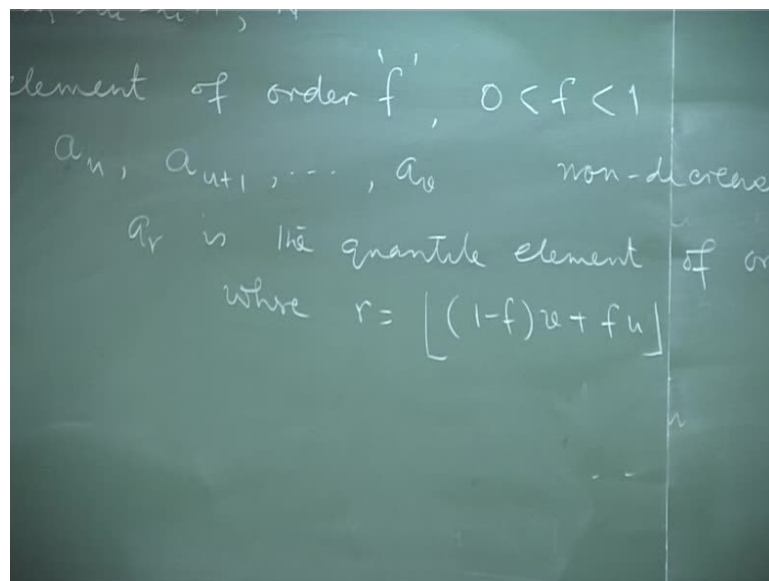 element of order 'f', 0 < f < 1
a_u, a_{u+1}, ..., a_v non-decreas
a_r is the quantile element of or
where r = ⌊(1-f)v + fu⌋